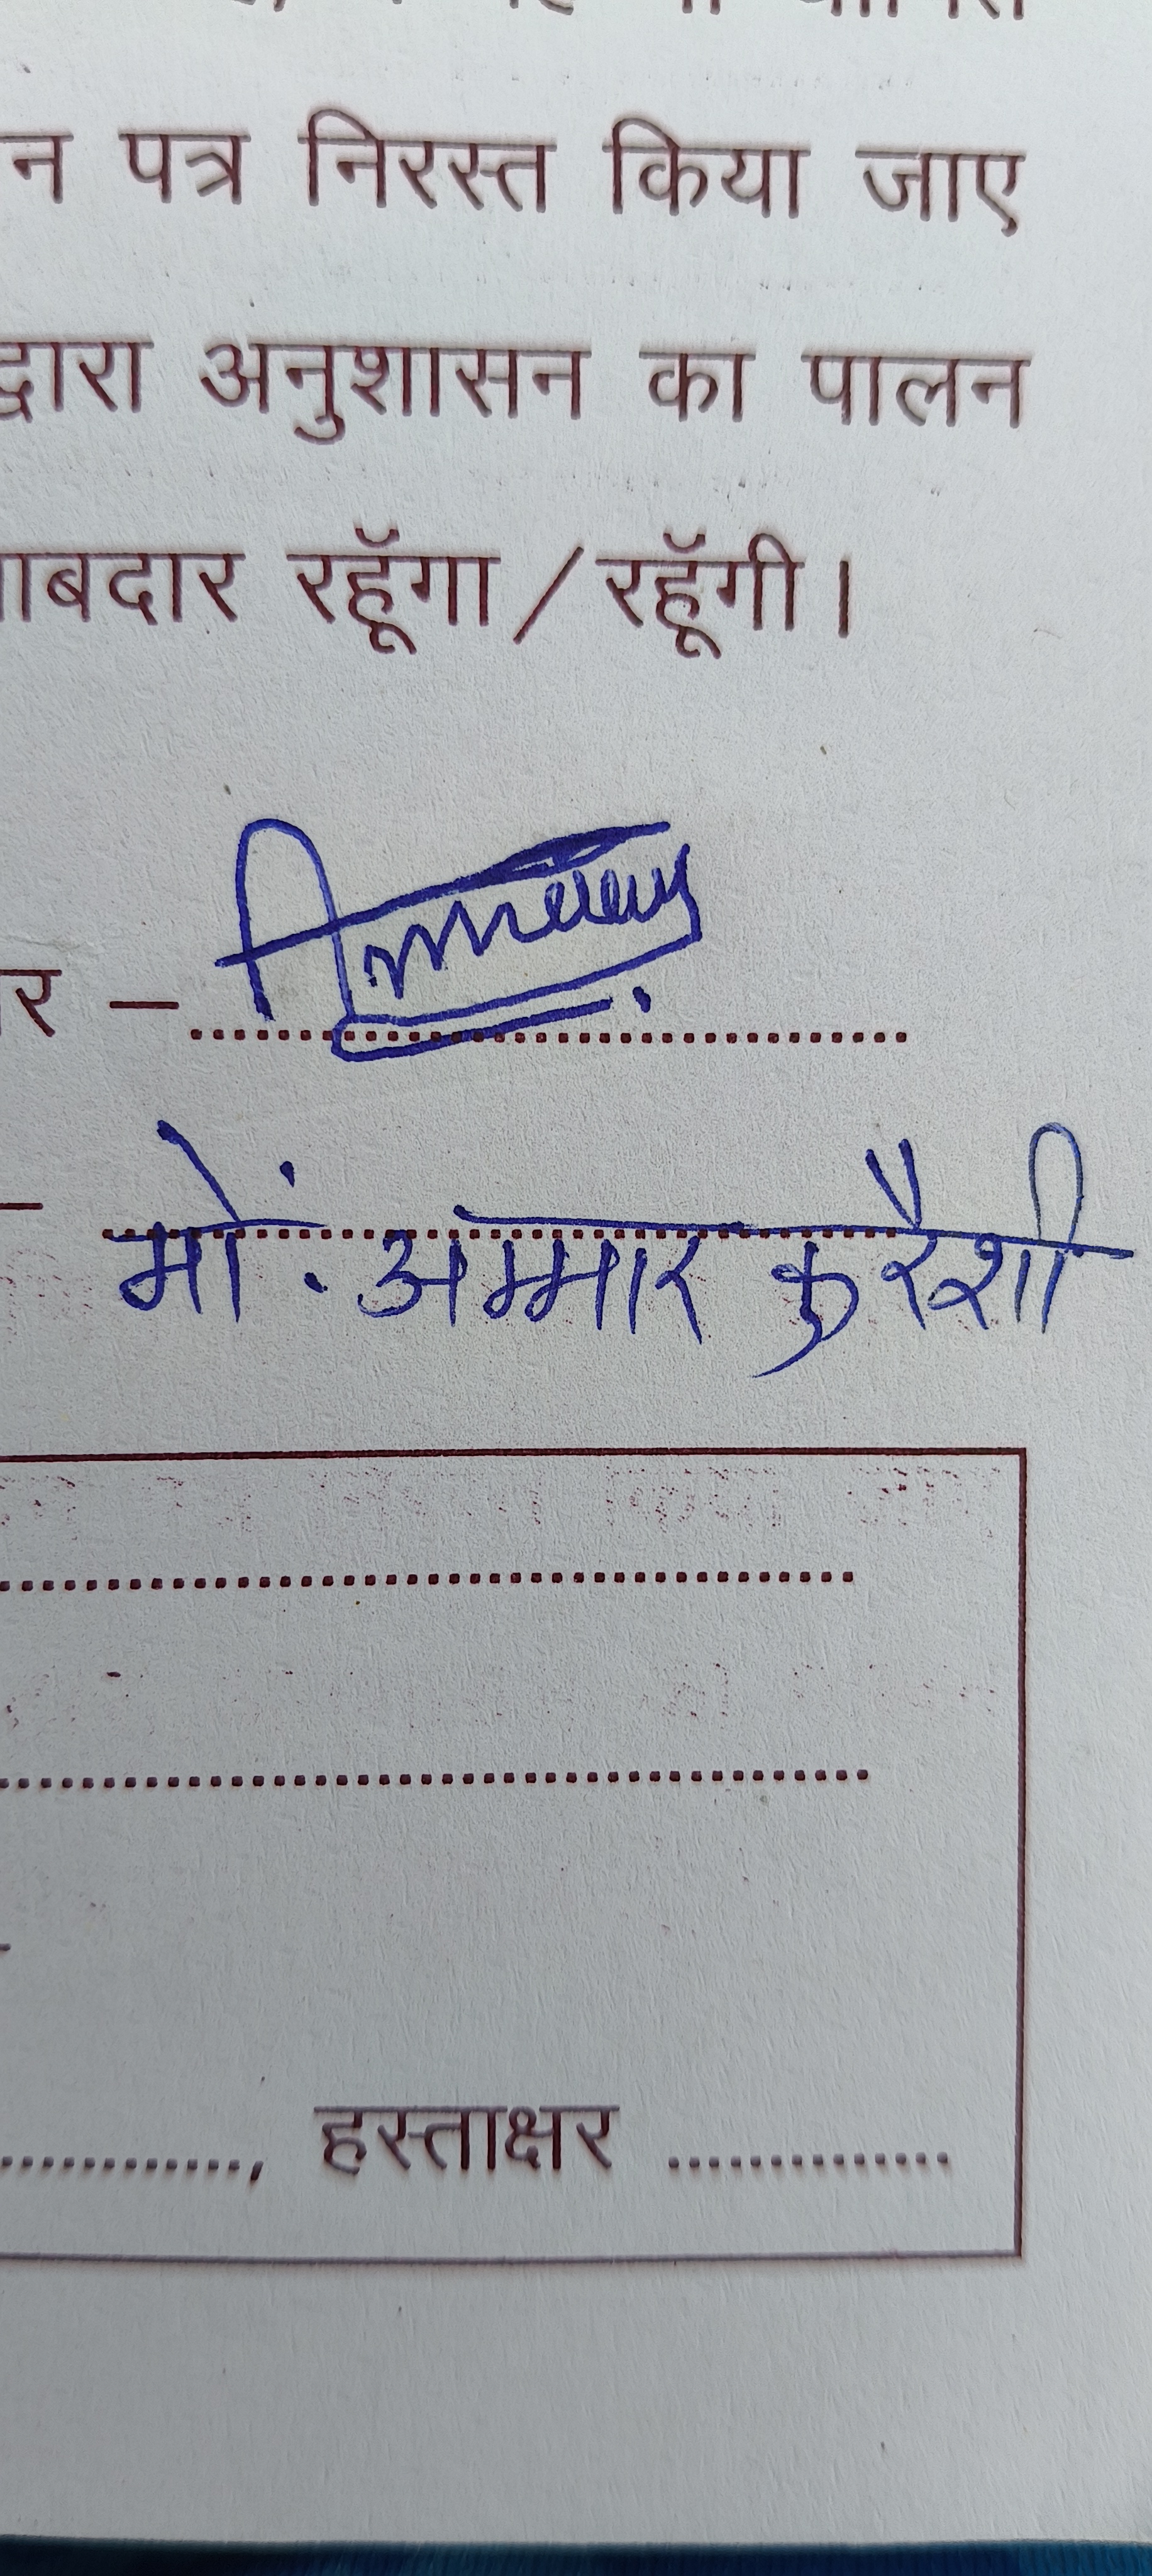 न पत्र निरस्त किया जाए
द्वारा अनुशासन का पालन
ाबदार रहूॅगा / रहूॅगी।
र –
– मों. अम्मार कुरैशी
, हस्ताक्षर